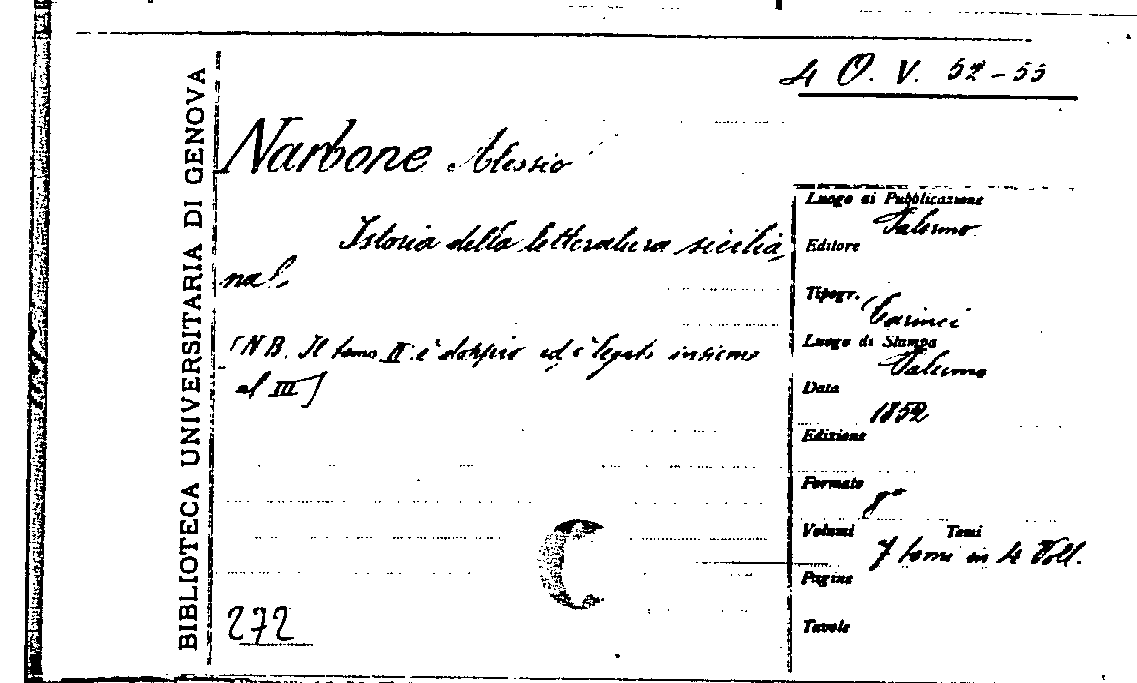 4 O. V. 52-55
BIBLIOTECA UNIVERSITARIA DI GENOVA
Narbone Alessio
Istoria della letteratura sicilia
na!.
[N B. Il tomo II è doppio ed è legato insieme
al III]
272
C
Luogo di Pubblicazione
Palermo
Editore
Tipogr. Carinci
Luogo di Stampa
Palermo
Data
1852
Edizione
Formato
8°
Volumi Tomi
7 tomi in 4 Voll.
Pagine
Tavole